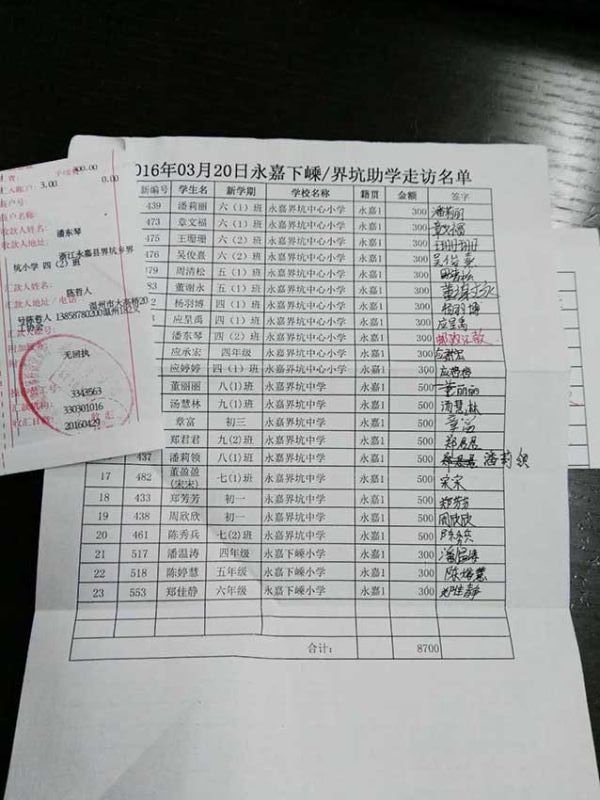 2016年03月20日永嘉下嵊/界坑助学走访名单
新编号 学生名 新学期 学校名称 籍贯 金额 签字
439 潘莉丽 六（1）班 永嘉界坑中心小学 永嘉1 300 潘莉丽
473 章文福 六（1）班 永嘉界坑中心小学 永嘉1 300 章文福
475 王珊珊 六（2）班 永嘉界坑中心小学 永嘉1 300 王珊珊
476 吴俊熹 六（2）班 永嘉界坑中心小学 永嘉1 300 吴俊熹
479 周清松 五（1）班 永嘉界坑中心小学 永嘉1 300
董谢永 五（1）班 永嘉界坑中心小学 永嘉1 300 董谢永
杨羽博 四（1）班 永嘉界坑中心小学 永嘉1 300 杨羽博
应呈禹 四（1）班 永嘉界坑中心小学 永嘉1 300 应呈禹
潘东琴 四（2）班 永嘉界坑中心小学 永嘉1 300 邮政汇款
应承宏 四年级 永嘉界坑中心小学 永嘉1 300 应承宏
应婷婷 四(1)班 永嘉界坑中心小学 永嘉1 300 应婷婷
董丽丽 八(1)班 永嘉界坑中学 永嘉1 500 董丽丽
汤慧林 九(1)班 永嘉界坑中学 永嘉1 500 汤慧林
章富 初三 永嘉界坑中学 永嘉1 500 章富
郑君君 九(2)班 永嘉界坑中学 永嘉1 500 郑君君
437 潘莉领 八(1)班 永嘉界坑中学 永嘉1 500 潘莉领
17 482 董盈盈(宋宋) 七(1)班 永嘉界坑中学 永嘉1 500 宋宋
18 433 郑芳芳 初一 永嘉界坑中学 永嘉1 500 郑芳芳
19 438 周欣欣 初一 永嘉界坑中学 永嘉1 500 周欣欣
20 461 陈秀兵 七(2)班 永嘉界坑中学 永嘉1 500 陈秀兵
21 517 潘温涛 四年级 永嘉下嵊小学 永嘉1 300 潘温涛
22 518 陈婷慧 五年级 永嘉下嵊小学 永嘉1 300 陈婷慧
23 553 郑佳静 六年级 永嘉下嵊小学 永嘉1 300 郑佳静
合计： 8700
3.00 0.00
收款人姓名：
潘东琴
收款人地址：
浙江永嘉县界坑乡界
坑小学 四（2）班
汇款人姓名：
陈哲人
汇款人地址/电话：
温州市大高桥20
号陈哲人 13858780200
无回执
3343563
330301016
20160429